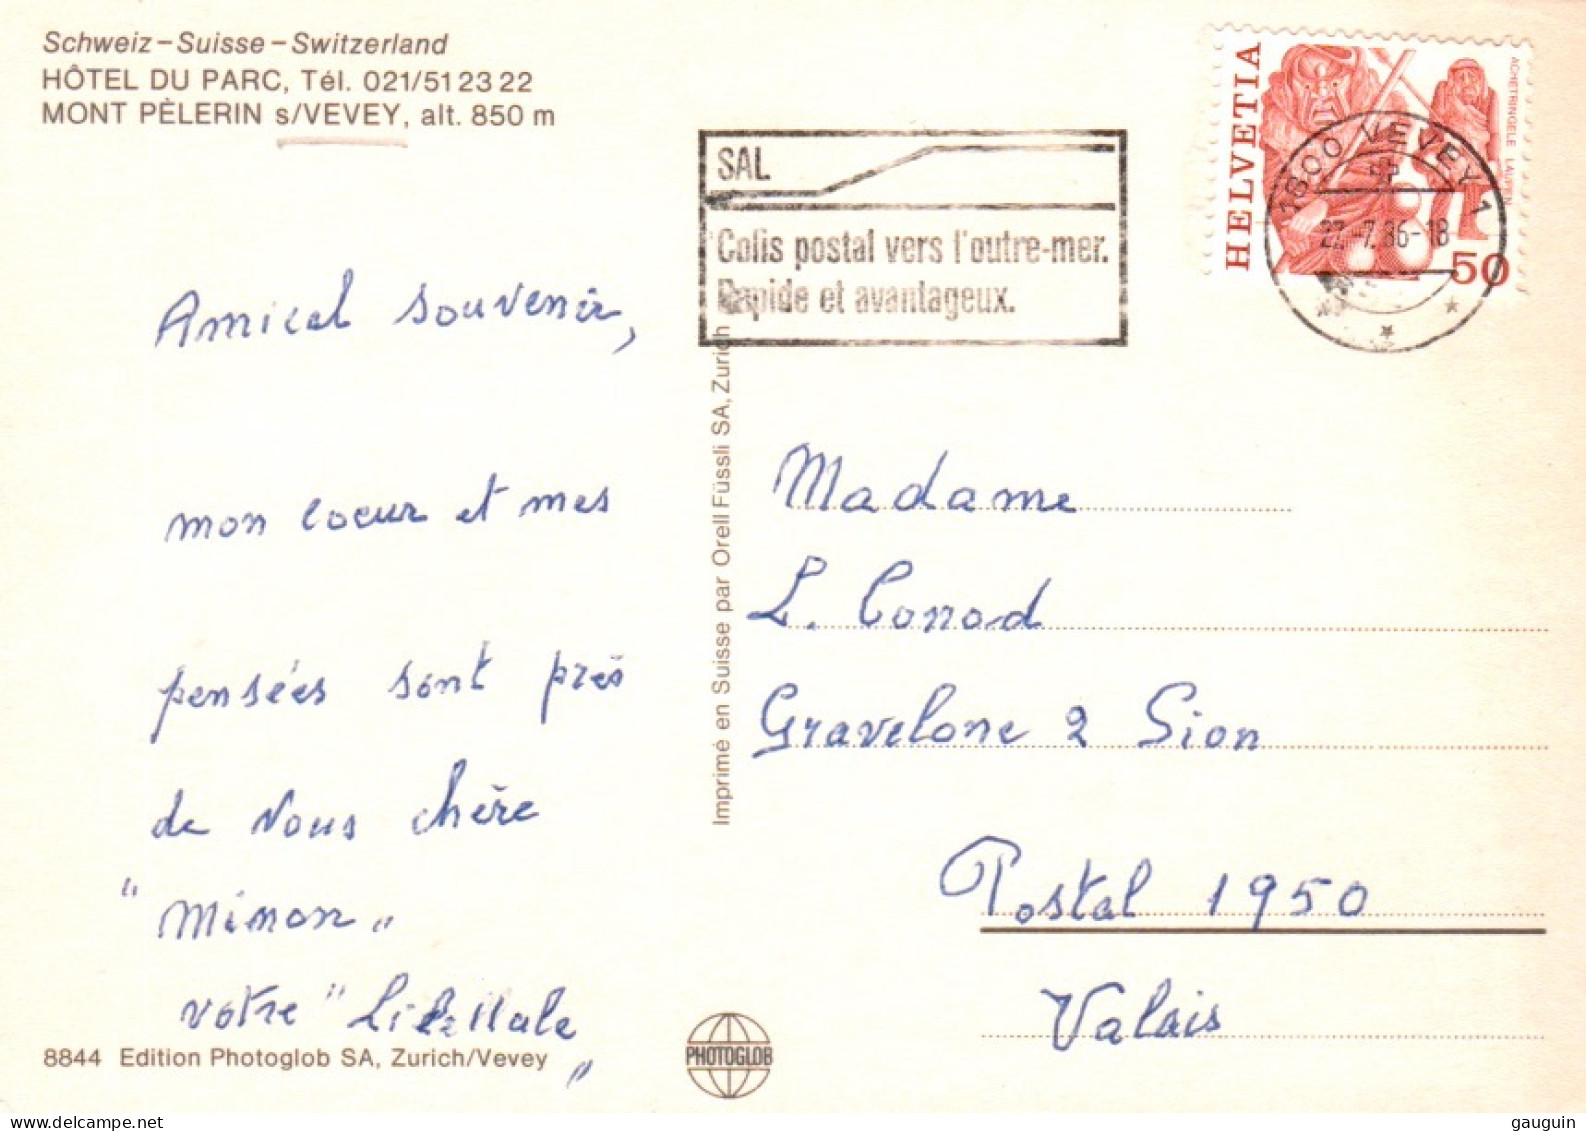 Schweiz – Suisse – Switzerland
HÔTEL DU PARC, Tél. 021/51 23 22
MONT PÈLERIN s/VEVEY, alt. 850 m
SAL
Colis postal vers l'outre-mer.
Rapide et avantageux.
HELVETIA
ACHETRINGELE LAUPEN
50
1800 VEVEY 1
22.-7.86-18
Amical souvenir,
mon coeur et mes
pensées sont près
de vous chère
"Mimon"
votre "Libellale"
Imprimé en Suisse par Orell Füssli SA, Zurich
Madame
L. Conod
Gravelone 2 Sion
Postal 1950
Valais
8844 Edition Photoglob SA, Zurich/Vevey
PHOTOGLOB
gauguin